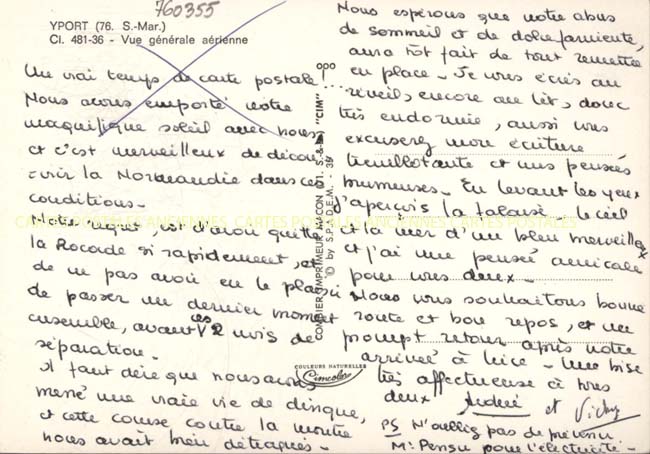 760355
YPORT (76. S.-Mar.)
Cl. 481-36 - Vue générale aérienne
Un vrai temps de carte postale !
Nous avons emporté votre
magnifique soleil avec nous
et c'est merveilleux de décou-
vrir la Normandie dans ces
conditions.
Notre regret, est d'avoir quitté
la Rocade si rapidement, et
de ne pas avoir eu le plaisir
de passer un dernier moment
ensemble, avant ces 2 mois de
séparation.
Il faut dire que nous avons
mené une vraie vie de dingue,
et cette course contre la montre
nous avait bien détraqués.
Nous espérons que notre abus
de sommeil et de dolce farniente,
aura tôt fait de tout remettre
en place. Je vous écris au
réveil, encore au lit, donc
très endormie, aussi vous
excuserez mon écriture
tremblotante et mes pensées
brumeuses. En levant les yeux
j'aperçois la falaise - le ciel
et la mer d'un bleu merveilleux
et j'ai une pensée amicale
pour vous deux.
Nous vous souhaitons bonne
route et bon repos, et un
prompt retour après notre
arrivée à Nice - Une bise
très affectueuse à vous
deux Andrée et Vichy
PS N'oubliez pas de prévenir
Mr Pensu pour l'électricité -
COMBIER IMPRIMEUR MACON (71. S.-&-L.) "CIM"
© by S.P.A.D.E.M. - 39
COULEURS NATURELLES
Cimcolor
CARTES POSTALES ANCIENNES CARTES POSTALES ANCIENNES CARTES POSTALES